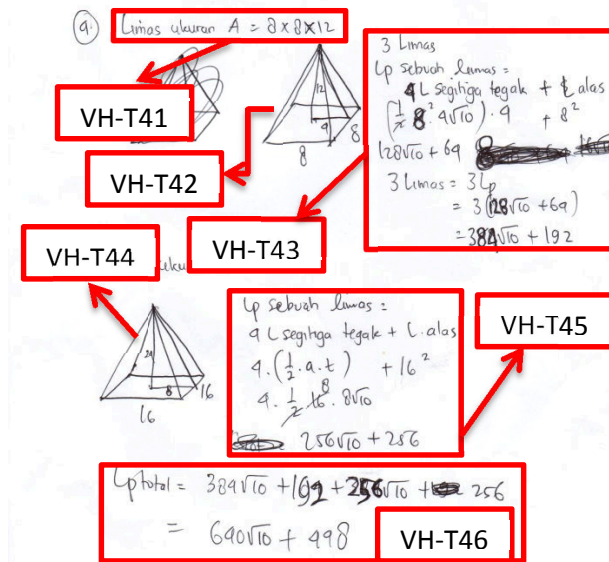 4. Limas ukuran A = 8 x 8 x 12
VH-T41
12
4
8
8
VH-T42
3 Limas
Lp sebuah limas =
4 L segitiga tegak + L alas
(1/2 8² 4√10) . 4 + 8²
128√10 + 64
3 Limas = 3 Lp
= 3(128√10 + 64)
= 384√10 + 192
VH-T43
VH-T44
24
8
16
16
Lp sebuah limas =
4 L segitiga tegak + L. alas
4. (1/2 . a . t) + 16²
4. 1/2 . 16 8 . 8√10
256√10 + 256
VH-T45
Lp total = 384√10 + 192 + 256√10 + 256
= 640√10 + 448
VH-T46